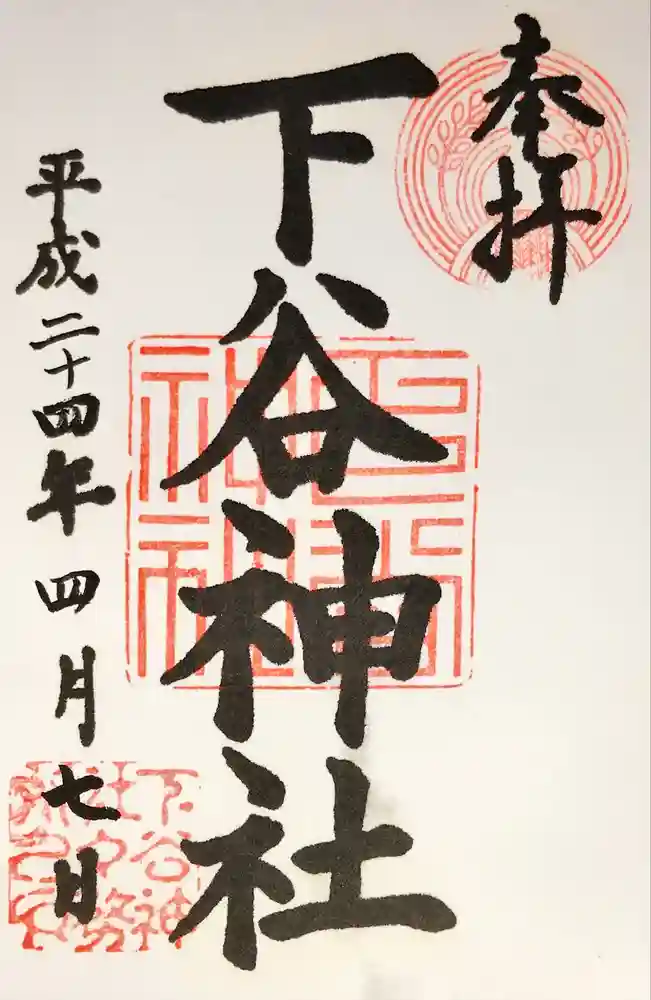 奉拝
下谷神社
平成二十四年四月七日
下谷神
社